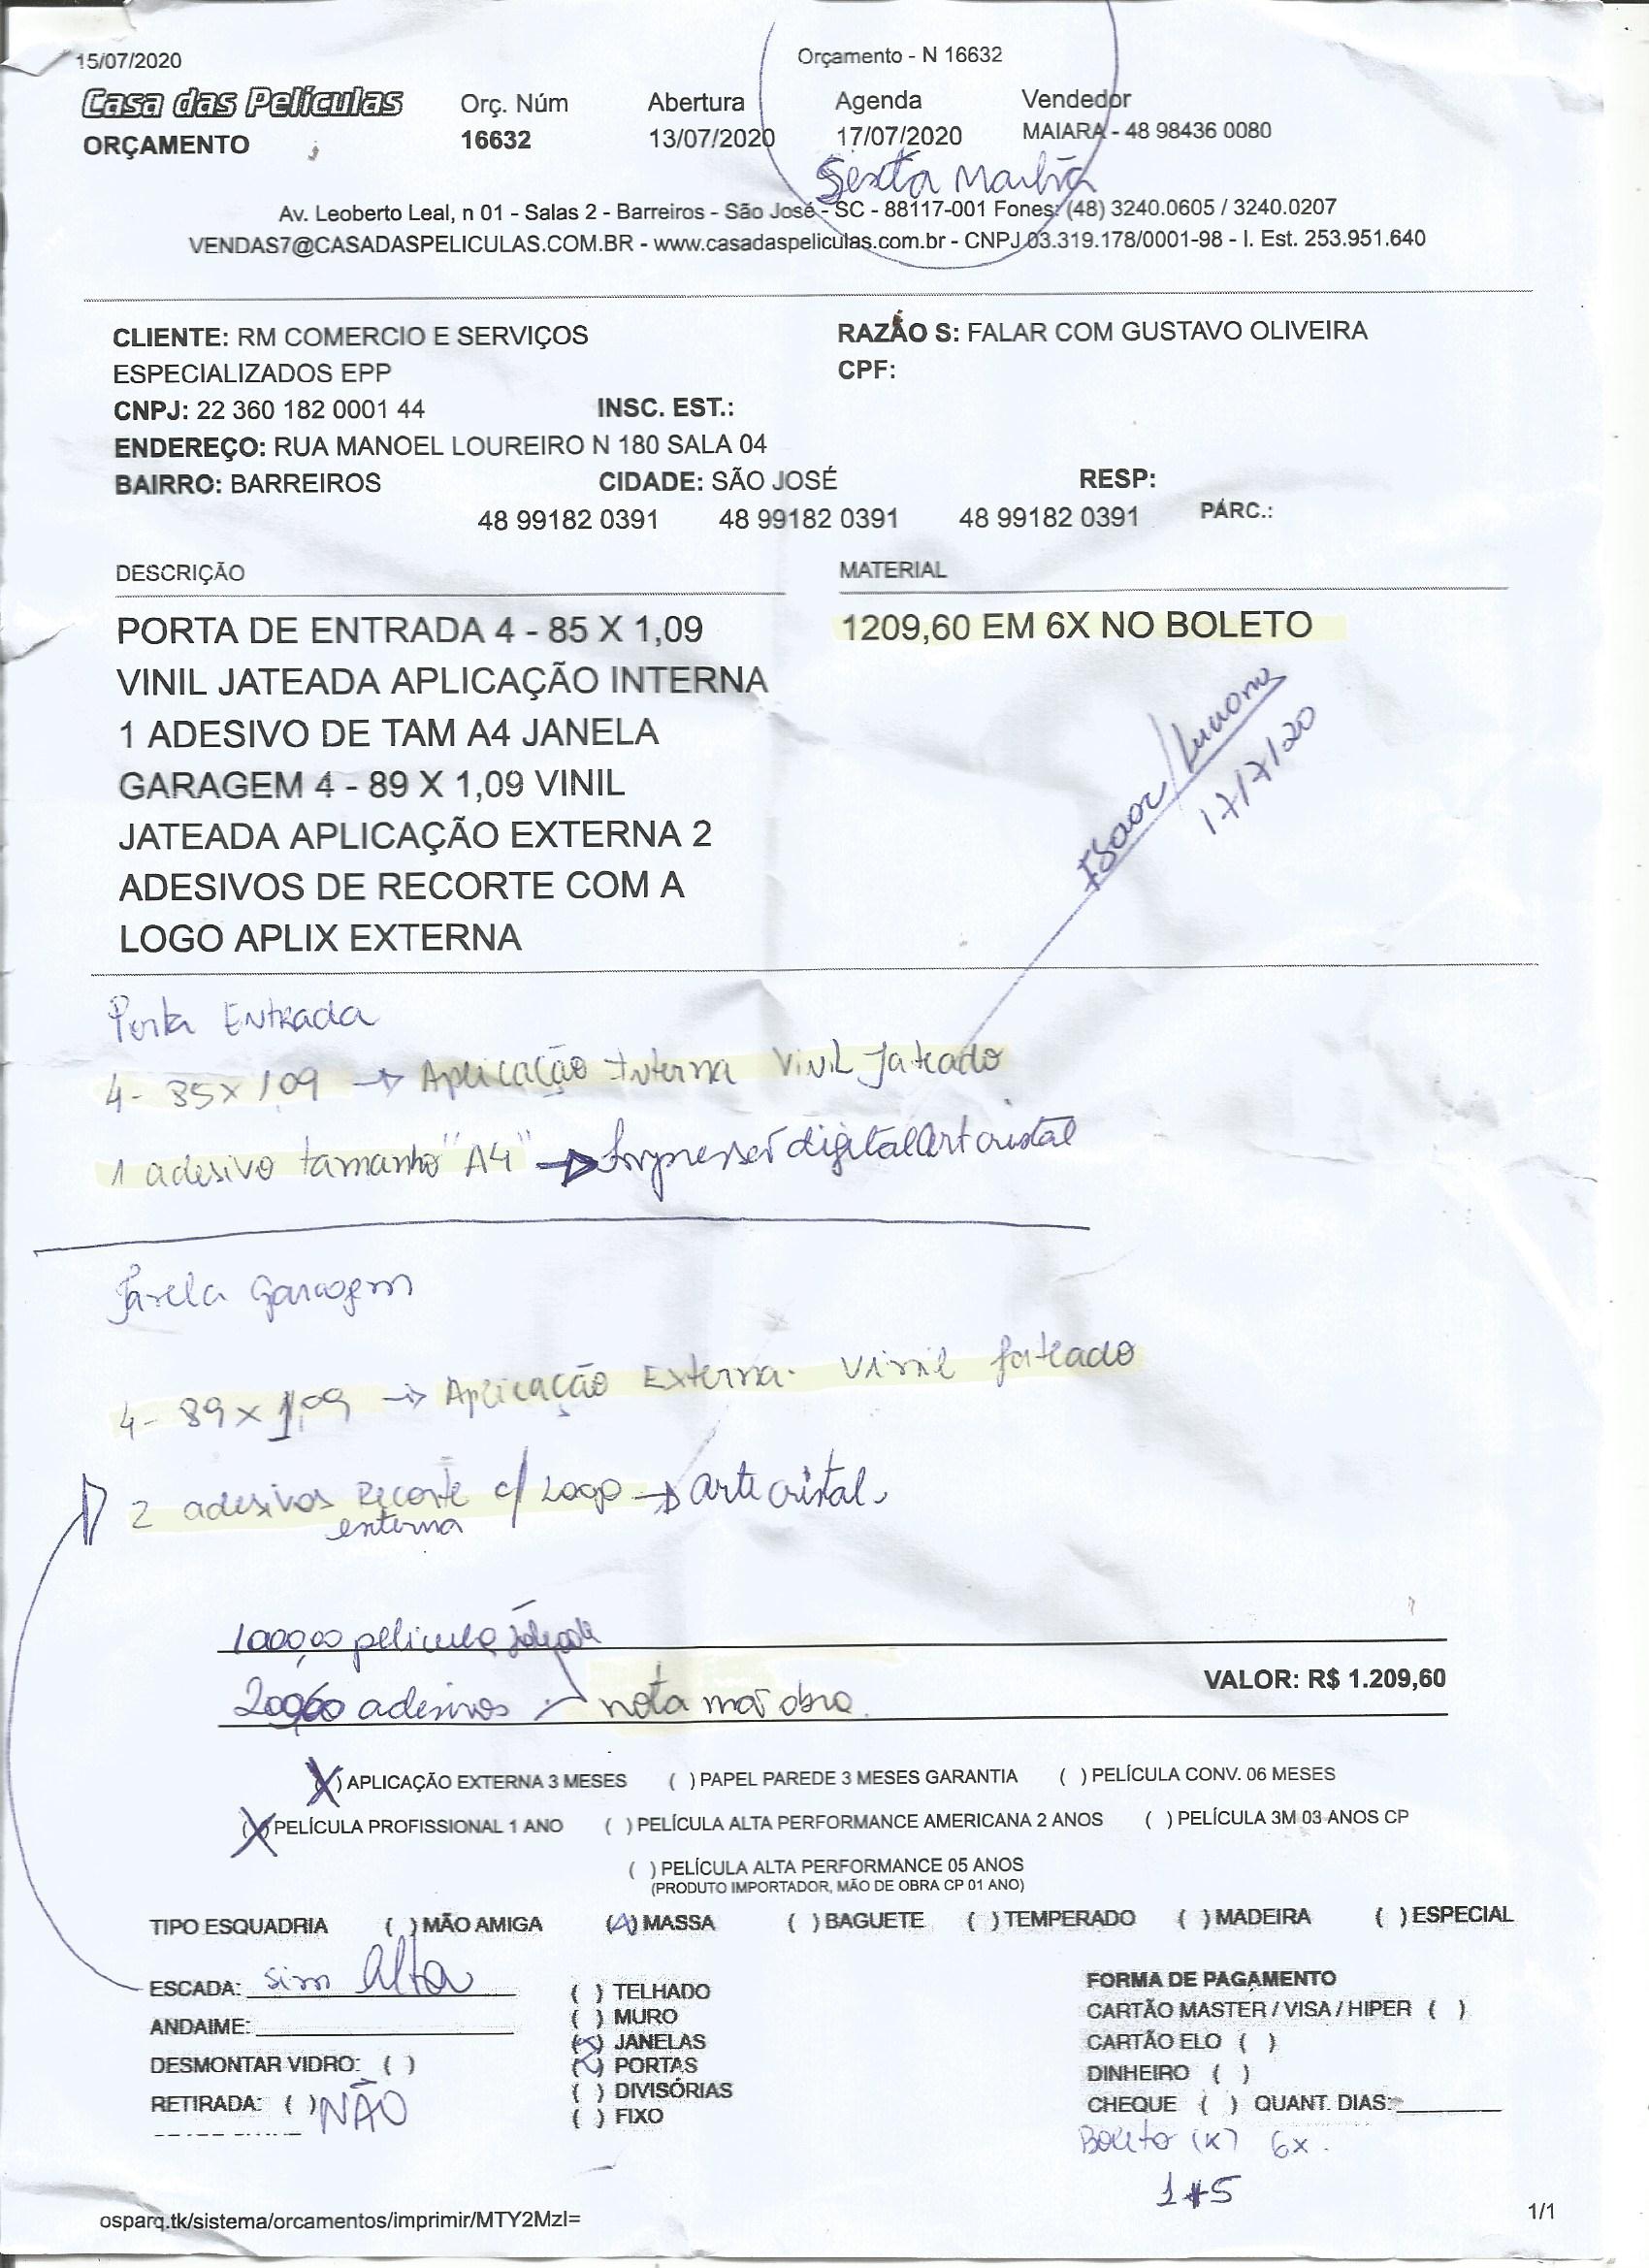 15/07/2020
Orçamento - N 16632
Casa das Películas
ORÇAMENTO
Orç. Núm
16632
Abertura
13/07/2020
Agenda
17/07/2020
Vendedor
MAIARA - 48 98436 0080
Sexta Manhã
Av. Leoberto Leal, n 01 - Salas 2 - Barreiros - São José - SC - 88117-001 Fones: (48) 3240.0605 / 3240.0207
VENDAS7@CASADASPELICULAS.COM.BR - www.casadaspeliculas.com.br - CNPJ 03.319.178/0001-98 - I. Est. 253.951.640
CLIENTE: RM COMERCIO E SERVIÇOS
ESPECIALIZADOS EPP
RAZÃO S: FALAR COM GUSTAVO OLIVEIRA
CPF:
CNPJ: 22 360 182 0001 44 INSC. EST.:
ENDEREÇO: RUA MANOEL LOUREIRO N 180 SALA 04
BAIRRO: BARREIROS CIDADE: SÃO JOSÉ RESP:
48 99182 0391 48 99182 0391 48 99182 0391 PARC.:
DESCRIÇÃO
PORTA DE ENTRADA 4 - 85 X 1,09
VINIL JATEADA APLICAÇÃO INTERNA
1 ADESIVO DE TAM A4 JANELA
GARAGEM 4 - 89 X 1,09 VINIL
JATEADA APLICAÇÃO EXTERNA 2
ADESIVOS DE RECORTE COM A
LOGO APLIX EXTERNA
MATERIAL
1209,60 EM 6X NO BOLETO
Isaac/
17/7/20
Porta Entrada
4 - 85 x 1,09 → Aplicação Interna Vinil Jateado
1 adesivo tamanho "A4" → Impressão digital Art cristal
Janela Garagem
4 - 89 x 1,09 → Aplicação Externa. Vinil Jateado
2 adesivos Recorte c/ Logo → arte cristal
externa
1000,00 pelicula jateada
209,60 adesivos nota mão obra.
VALOR: R$ 1.209,60
(X) APLICAÇÃO EXTERNA 3 MESES ( ) PAPEL PAREDE 3 MESES GARANTIA ( ) PELÍCULA CONV. 06 MESES
(X) PELÍCULA PROFISSIONAL 1 ANO ( ) PELÍCULA ALTA PERFORMANCE AMERICANA 2 ANOS ( ) PELÍCULA 3M 03 ANOS CP
( ) PELÍCULA ALTA PERFORMANCE 05 ANOS
(PRODUTO IMPORTADOR, MÃO DE OBRA CP 01 ANO)
TIPO ESQUADRIA ( ) MÃO AMIGA (X) MASSA ( ) BAGUETE ( ) TEMPERADO ( ) MADEIRA ( ) ESPECIAL
ESCADA: sim Alta
ANDAIME:
DESMONTAR VIDRO: ( )
RETIRADA: ( ) NÃO
( ) TELHADO
( ) MURO
(X) JANELAS
(X) PORTAS
( ) DIVISÓRIAS
( ) FIXO
FORMA DE PAGAMENTO
CARTÃO MASTER / VISA / HIPER ( )
CARTÃO ELO ( )
DINHEIRO ( )
CHEQUE ( ) QUANT. DIAS:
Boleto (x) 6x.
1+5
osparq.tk/sistema/orcamentos/imprimir/MTY2MzI=
1/1